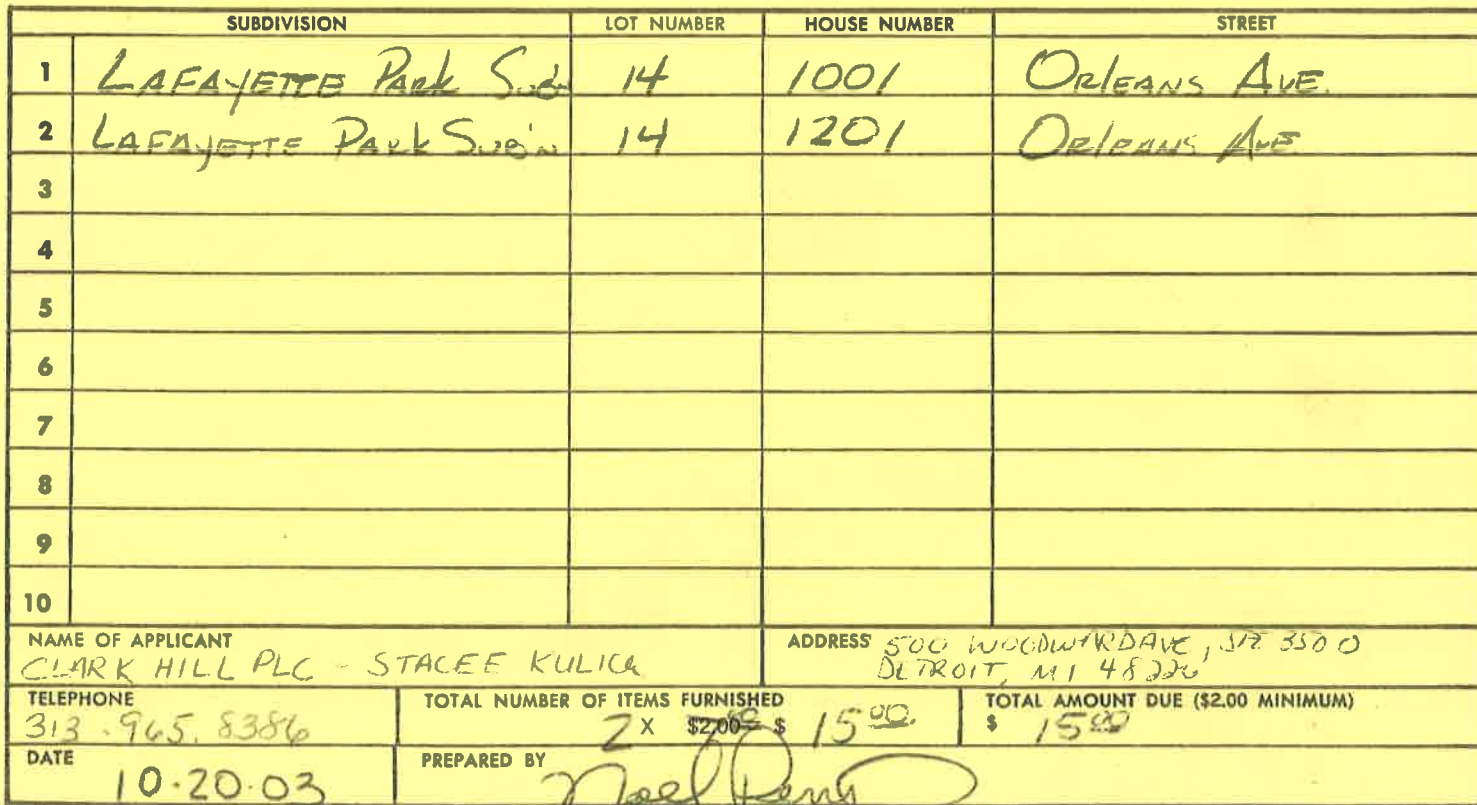 SUBDIVISION LOT NUMBER HOUSE NUMBER STREET
1 LAFAYETTE PARK SUB 14 1001 ORLEANS AVE.
2 LAFAYETTE PARK SUB'N 14 1201 ORLEANS AVE
3
4
5
6
7
8
9
10
NAME OF APPLICANT
CLARK HILL PLC - STACEE
ADDRESS 500 WOODWARD AVE, STE 3500
DETROIT, MI 48226
TELEPHONE
313.965.8386
TOTAL NUMBER OF ITEMS FURNISHED
2 X $2.00 $ 15 00
TOTAL AMOUNT DUE ($2.00 MINIMUM)
$ 15 00
DATE
10.20.03
PREPARED BY
Noel